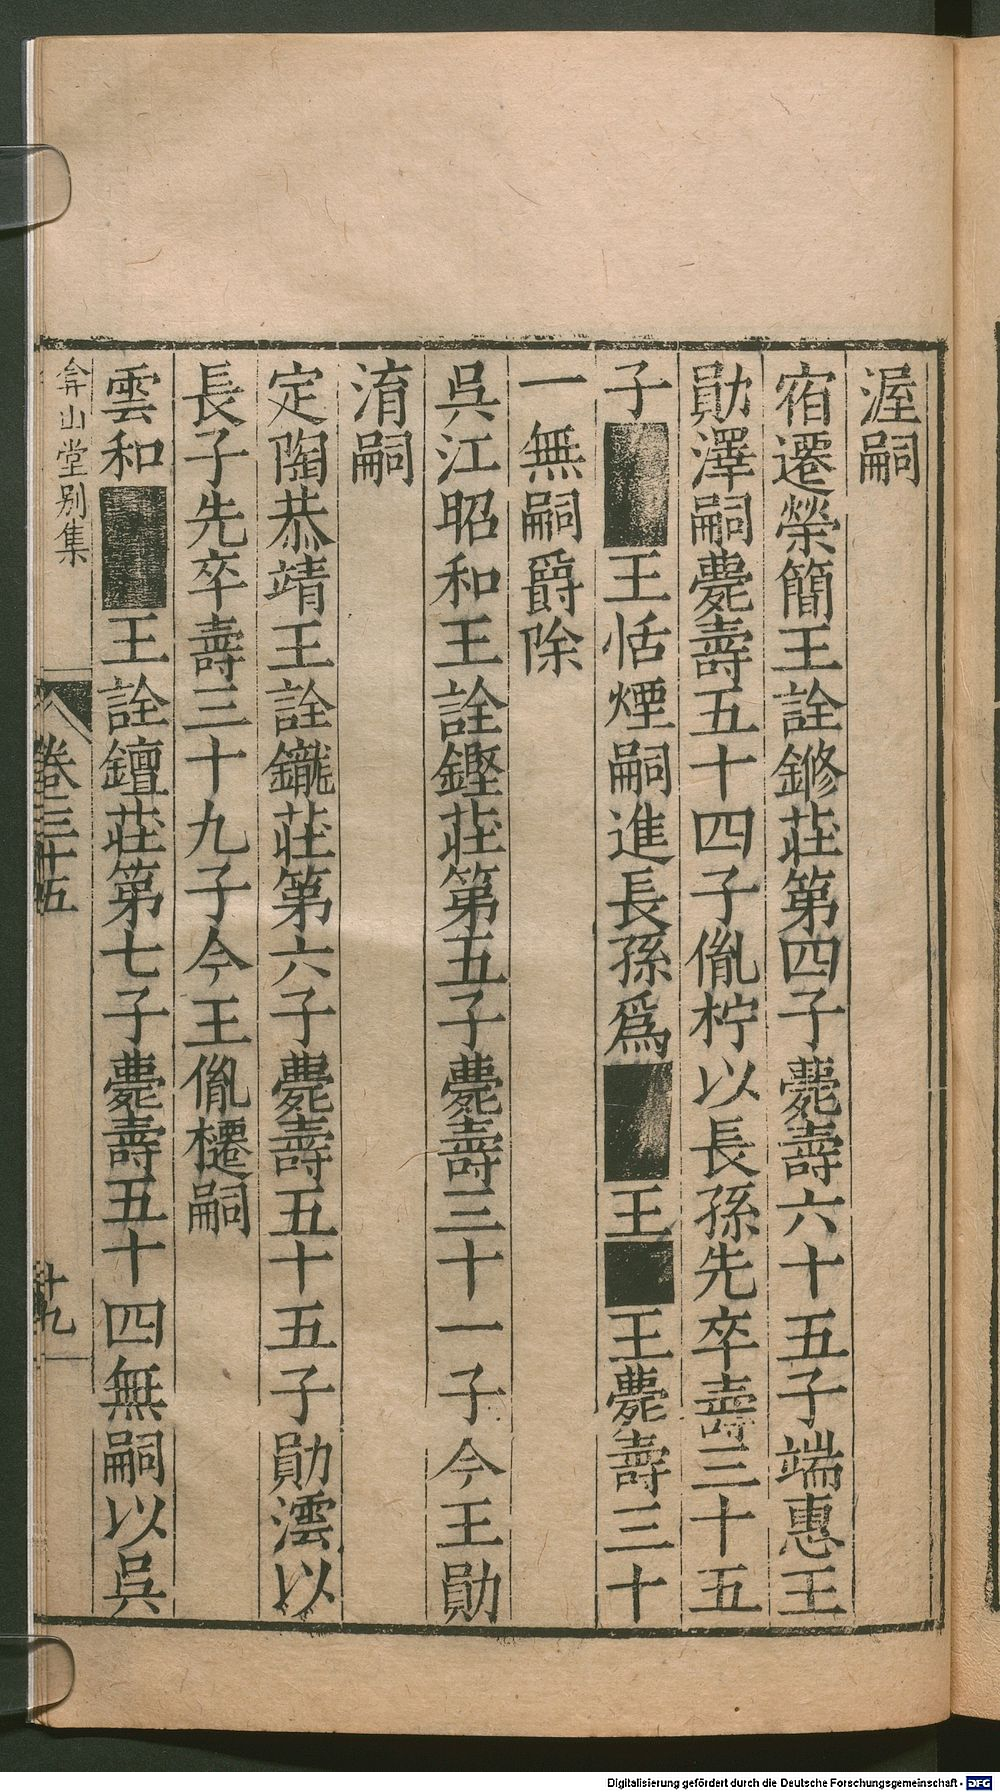 渥嗣
宿遷榮簡王詮鏅莊第四子薨壽六十五子端惠王
勛澤嗣薨壽五十四子胤柠以長孫先卒壽三十五
子■■王恬煙嗣進長孫爲■■王■王薨壽三十
一無嗣爵除
吳江昭和王詮鏗莊第五子薨壽三十一子今王勛
淯嗣
定陶恭靖王詮鑨莊第六子薨壽五十五子勛澐以
長子先卒壽三十九子今王胤櫏嗣
雲和■■王詮鐔莊第七子薨壽五十四無嗣以吳
弇山堂別集
卷三十五
十九
Digitalisierung gefördert durch die Deutsche Forschungsgemeinschaft - DFG